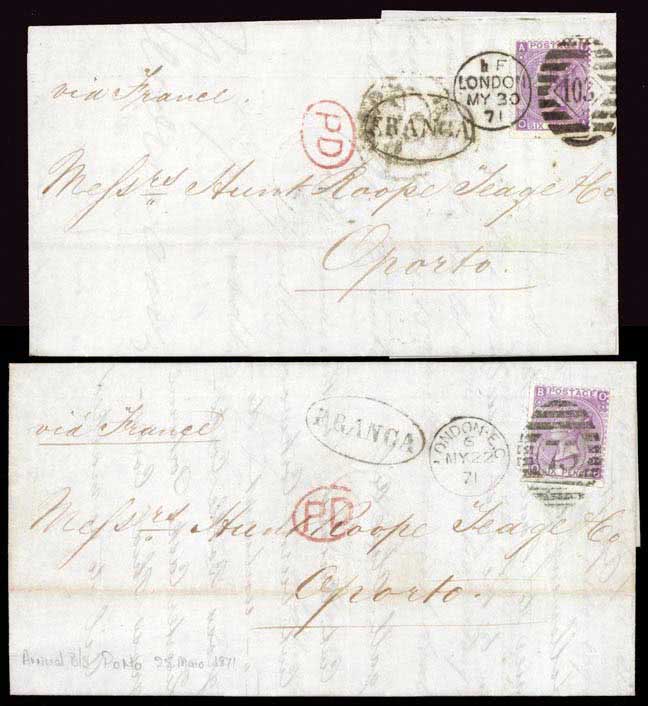 via France.
PD
FRANCA
LF
LONDON
MY 30
71
A POSTAGE
SIX
103
Messrs Hunt Roope Teage & Co
Oporto.
via France
FRANCA
LONDON·E.C
6
MY 22
71
B POSTAGE O
SIX PENCE
75
PD
Messrs Hunt Roope Teage & Co
Oporto.
Arrival B/S Porto 28 Maio 1871